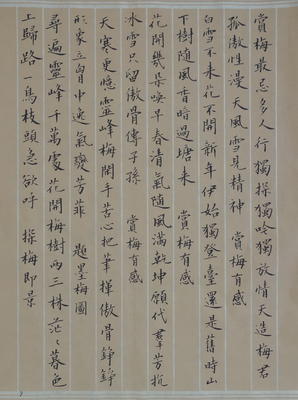 賞梅最忌多人行獨探獨吟獨放情天造梅君
孤傲性漫天風雪見精神 賞梅有感
白雪不来花不開新年伊始獨登臺還是舊時山
下樹隨風香暗過塘来 賞梅有感
花開幾朵喚早春清氣隨風滿乾坤願代群芳抗
冰雪只留傲骨傳子孫 賞梅有感
天寒更憶靈峰梅閒手苦心把筆揮傲骨錚錚
形象立胷中逸氣發芳菲 題墨梅圖
尋遍靈峰千萬處花開梅樹兩三株茫〻暮色
上歸路一鳥枝頭急欲呼 探梅即景